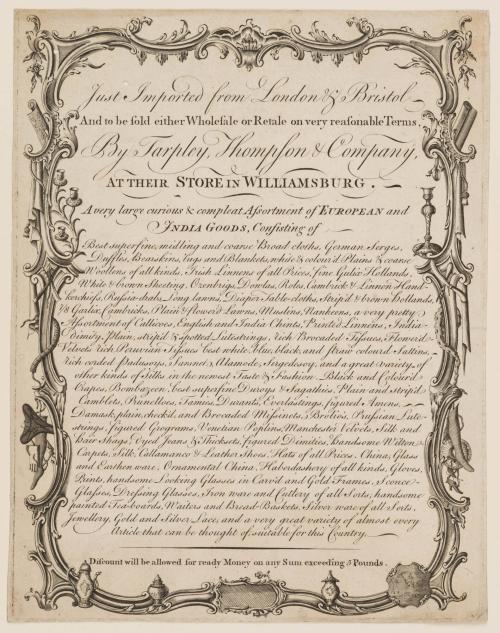 Just Imported from London & Bristol
And to be sold either Wholesale or Retale on very reasonable Terms,
By Tarpley, Thompson & Company,
AT THEIR STORE IN WILLIAMSBURG.
A very large curious & compleat Assortment of EUROPEAN and
INDIA GOODS, Consisting of
Best superfine, midling and coarse Broad cloths, German Serges,
Duffils, Bearskins, Rugs and Blankets, white & colour'd Plains & coarse
Woollens of all kinds, Irish Linnens of all Prices, fine Gulix Hollands,
White & brown Sheeting, Oznabrigs, Dowlas, Roles, Cambrick & Linnen Hand
kerchiefs, Russia-drab, Long lawns, Diaper Table-cloths, Strip'd & brown Hollands,
7/8 Garlix, Cambricks, Plain & flower'd Lawns, Muslins, Nankeens, a very pretty
Assortment of Callicoes, English and India Chints, Printed Linnens, India
Dimity, Plain, strip'd & spotted Lutestrings, rich Brocaded Tissues, Flower'd
Velvets, rich Peruvian Tissues, best white, blue, black, and straw colour'd Sattins,
rich corded Padusoys, Mamnet, Alamode, Sergedesoy, and a great variety of
other kinds of Silks in the newest Taste & Fashion. Black and Colour'd
Crapes, Bombazeen, best superfine Duroys & Sagathies, Plain and strip'd
Camblets, Prunelloes, Tamies, Durants, Everlastings, figured Amens,
Damask, plain, check'd, and Brocaded Missinets, Brolios, Prussian Lute-
strings, figured Grograms, Venetian Poplins, Manchester Velvets, Silk and
Hair Shags, Dyed Jeans & Thicksets, figured Dimities, handsome Wilton
Carpets, Silk, Callamanco & Leather Shoes, Hats of all Prices, China, Glass
and Earthen ware, Ornamental China, Haberdashery of all kinds, Gloves,
Prints, handsome Looking Glasses in Carv'd and Gold Frames, Sconce
Glasses, Dressing Glasses, Iron ware and Cutlery of all Sorts, handsome
painted Tea-boards, Waiters and Bread-Baskets, Silver ware of all Sorts,
Jewellery, Gold and Silver Lace, and a very great variety of almost every
Article that can be thought of suitable for this Country.
A Discount will be allowed for ready Money on any Sum exceeding 5 Pounds.